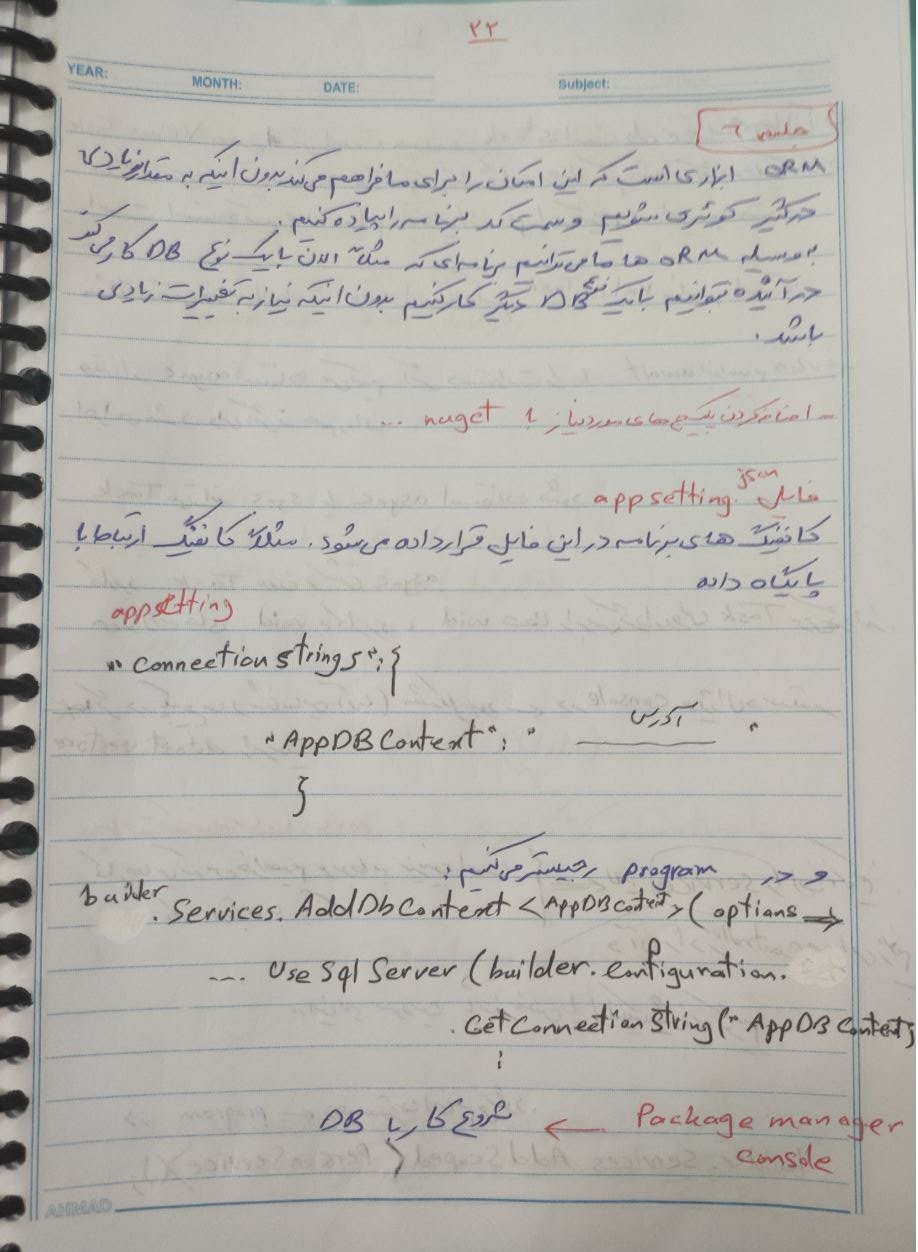 ۲۲
YEAR: MONTH: DATE: Subject:
جلسه ۶
ORM ابزاری است که این امکان را برای ما فراهم می‌کند بدون اینکه به مقدار زیادی
درگیر کوئری شویم و سمت کد برنامه را پیاده کنیم.
بوسیله ORM ها ما می‌توانیم برنامه‌ای که مثلاً الان با یک نوع DB کار می‌کند
در آینده بتوانیم با یک نوع DB دیگر کار کنیم بدون اینکه نیاز به تغییرات زیادی
باشد.
- اضافه کردن پکیج های مورد نیاز با nuget ...
فایل appsetting.json
کانفیگ های برنامه در این فایل قرار داده می‌شود. مثلاً کانفیگ ارتباط با
پایگاه داده
appsetting
"Connection strings": {
"AppDBContext": " آدرس "
}
و در program رجیستر می‌کنیم:
builder
.Services.AddDbContext <AppDBContext> (options ⇒
... Use Sql Server (builder.Configuration.
.GetConnectionString("AppDBContext
⋮
Package manager ← شروع کار با DB
console
AHMAD